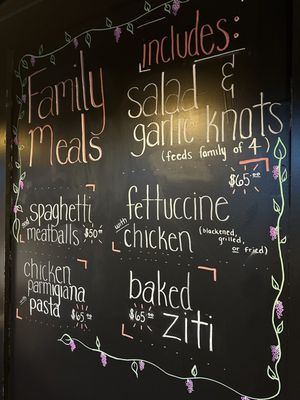 Family Meals
includes:
salad &
garlic knots
(feeds family of 4)
spaghetti
meatballs $50.00
fettuccine
with chicken (blackened, grilled, or fried)
$65.00
chicken
parmigiana
pasta $65.00
baked
$65.00 ziti